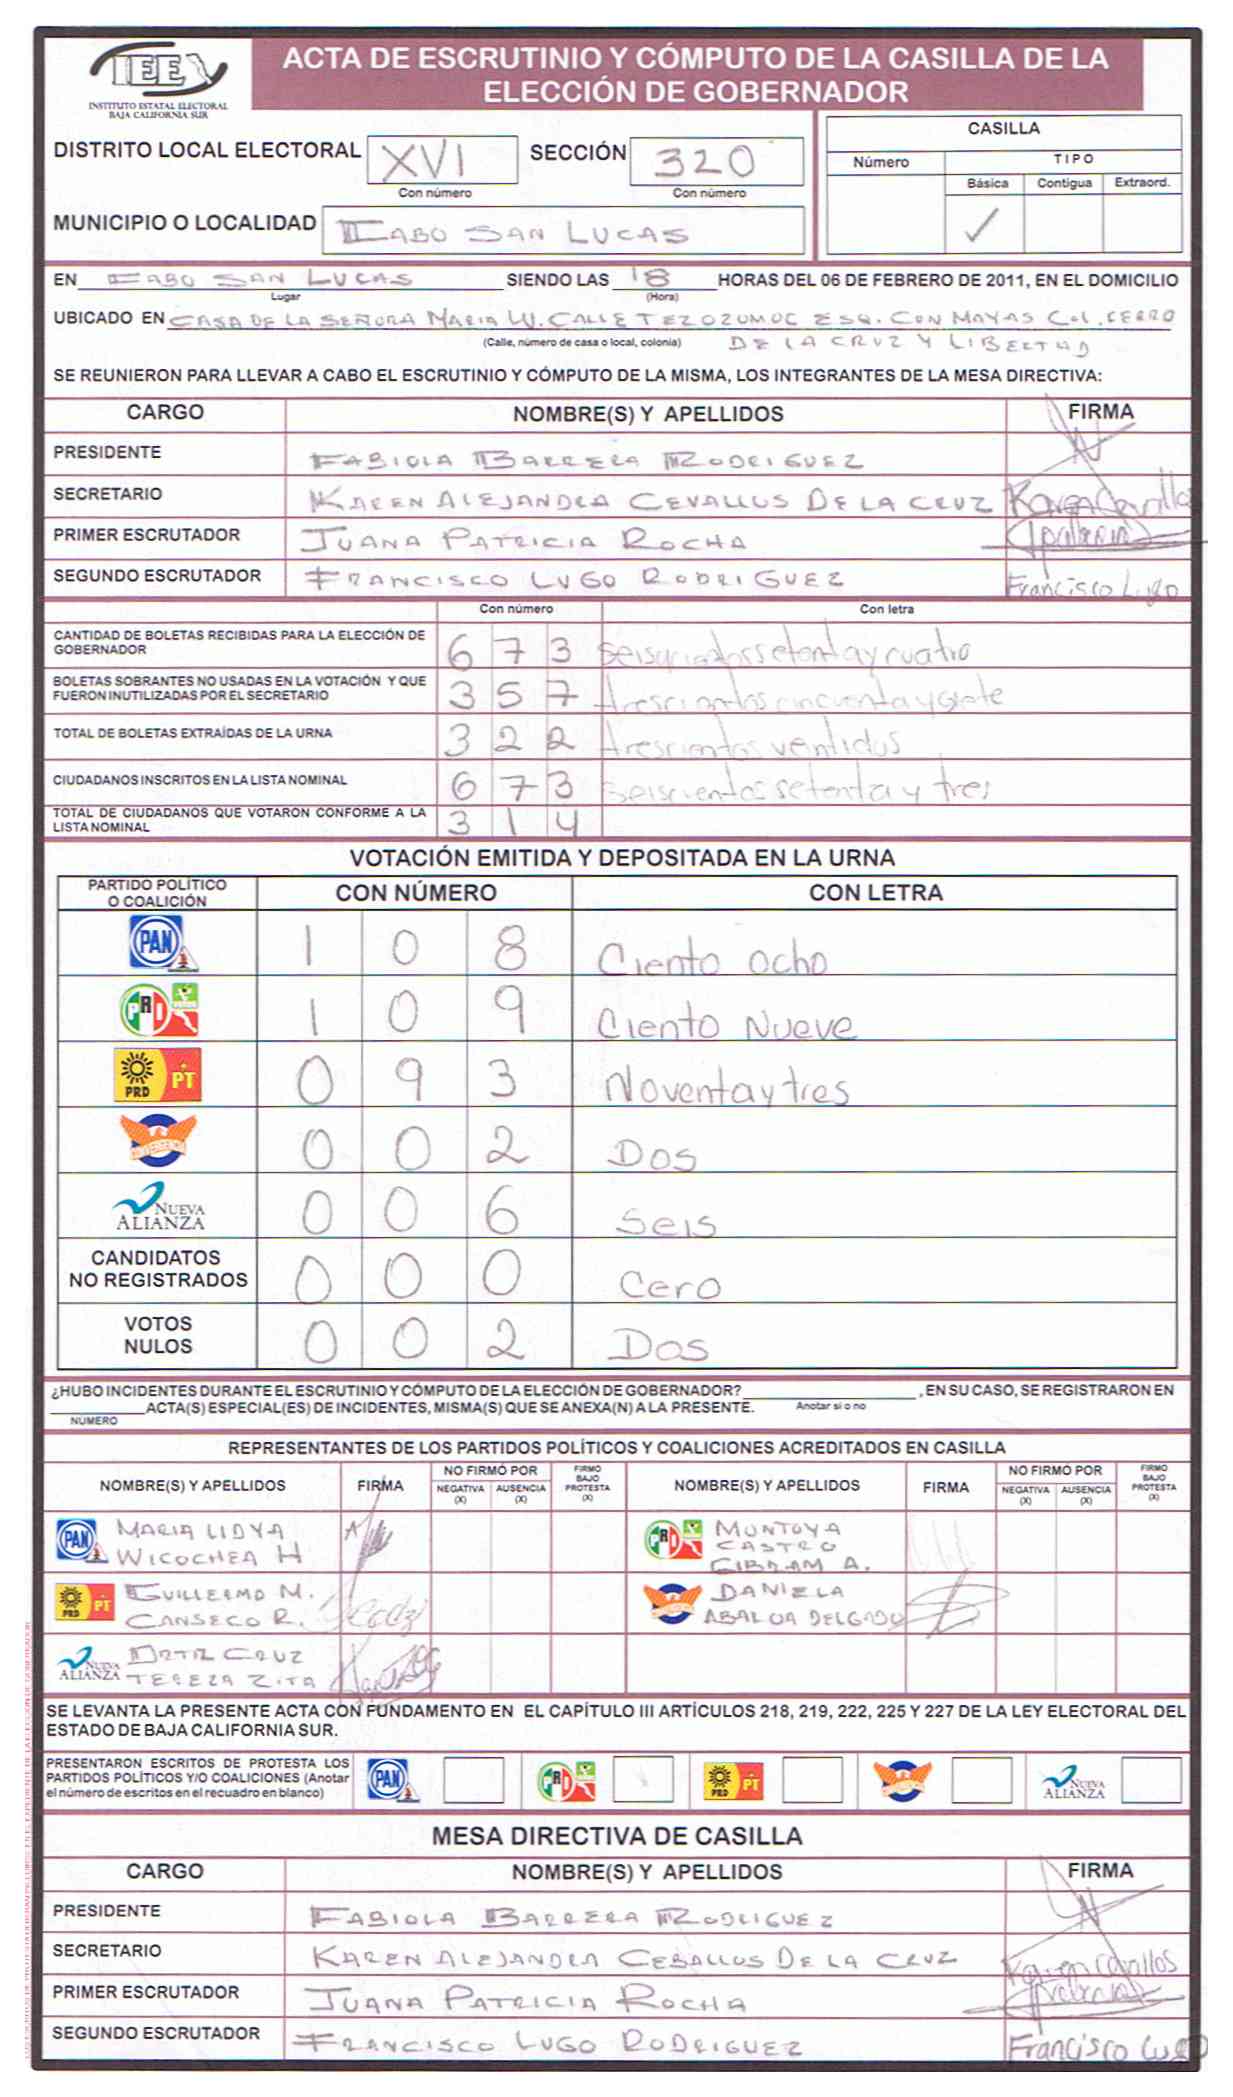 IEE
INSTITUTO ESTATAL ELECTORAL
BAJA CALIFORNIA SUR
ACTA DE ESCRUTINIO Y CÓMPUTO DE LA CASILLA DE LA
ELECCIÓN DE GOBERNADOR
DISTRITO LOCAL ELECTORAL XVI SECCIÓN 320
Con número Con número
MUNICIPIO O LOCALIDAD CABO SAN LUCAS
CASILLA
Número TIPO
Básica Contigua Extraord.
✓
EN CABO SAN LUCAS SIENDO LAS 18 HORAS DEL 06 DE FEBRERO DE 2011, EN EL DOMICILIO
Lugar (Hora)
UBICADO EN CASA DE LA SEÑORA MARIA LU. CALLE TEZOZUMOC ESQ. CON MAYAS COL. CERRO
(Calle, número de casa o local, colonia) DE LA CRUZ Y LIBERTAD
SE REUNIERON PARA LLEVAR A CABO EL ESCRUTINIO Y CÓMPUTO DE LA MISMA, LOS INTEGRANTES DE LA MESA DIRECTIVA:
CARGO NOMBRE(S) Y APELLIDOS FIRMA
PRESIDENTE FABIOLA BARRERA RODRIGUEZ
SECRETARIO KAREN ALEJANDRA CEVALLOS DE LA CRUZ Karen Cevallos
PRIMER ESCRUTADOR JUANA PATRICIA ROCHA
SEGUNDO ESCRUTADOR FRANCISCO LUGO RODRIGUEZ Francisco Lugo
Con número Con letra
CANTIDAD DE BOLETAS RECIBIDAS PARA LA ELECCIÓN DE
GOBERNADOR 6 7 3 seiscientos setenta y cuatro
BOLETAS SOBRANTES NO USADAS EN LA VOTACIÓN Y QUE
FUERON INUTILIZADAS POR EL SECRETARIO 3 5 7 trescientos cincuenta y siete
TOTAL DE BOLETAS EXTRAÍDAS DE LA URNA 3 2 2 trescientos ventidos
CIUDADANOS INSCRITOS EN LA LISTA NOMINAL 6 7 3 seiscientos setenta y tres
TOTAL DE CIUDADANOS QUE VOTARON CONFORME A LA
LISTA NOMINAL 3 1 4
VOTACIÓN EMITIDA Y DEPOSITADA EN LA URNA
PARTIDO POLÍTICO
O COALICIÓN CON NÚMERO CON LETRA
PAN 1 0 8 Ciento ocho
PRD 1 0 9 Ciento Nueve
PRD PT 0 9 3 Noventa y tres
CONVERGENCIA 0 0 2 Dos
NUEVA ALIANZA 0 0 6 Seis
CANDIDATOS
NO REGISTRADOS 0 0 0 Cero
VOTOS
NULOS 0 0 2 Dos
¿HUBO INCIDENTES DURANTE EL ESCRUTINIO Y CÓMPUTO DE LA ELECCIÓN DE GOBERNADOR? , EN SU CASO, SE REGISTRARON EN
ACTA(S) ESPECIAL(ES) DE INCIDENTES, MISMA(S) QUE SE ANEXA(N) A LA PRESENTE. Anotar si o no
NÚMERO
REPRESENTANTES DE LOS PARTIDOS POLÍTICOS Y COALICIONES ACREDITADOS EN CASILLA
NOMBRE(S) Y APELLIDOS FIRMA NO FIRMÓ POR NEGATIVA (X) AUSENCIA (X) FIRMO BAJO PROTESTA (X) NOMBRE(S) Y APELLIDOS FIRMA NO FIRMÓ POR NEGATIVA (X) AUSENCIA (X) FIRMO BAJO PROTESTA (X)
PAN MARIA LIDYA
WICOCHEA H
PRD MONTOYA
CASTRO
GIBRAM A.
PRD PT GUILLERMO M.
CANSECO R.
DANIELA
ABAROA DELGADO
NUEVA ALIANZA ORTIZ CRUZ
TEREZA ZITA
SE LEVANTA LA PRESENTE ACTA CON FUNDAMENTO EN EL CAPÍTULO III ARTÍCULOS 218, 219, 222, 225 Y 227 DE LA LEY ELECTORAL DEL
ESTADO DE BAJA CALIFORNIA SUR.
PRESENTARON ESCRITOS DE PROTESTA LOS
PARTIDOS POLÍTICOS Y/O COALICIONES (Anotar
el número de escritos en el recuadro en blanco)
PAN PRD PRD PT NUEVA ALIANZA
MESA DIRECTIVA DE CASILLA
CARGO NOMBRE(S) Y APELLIDOS FIRMA
PRESIDENTE FABIOLA BARRERA RODRIGUEZ
SECRETARIO KAREN ALEJANDRA CEBALLOS DE LA CRUZ Karen Cevallos
PRIMER ESCRUTADOR JUANA PATRICIA ROCHA
SEGUNDO ESCRUTADOR FRANCISCO LUGO RODRIGUEZ Francisco Lugo